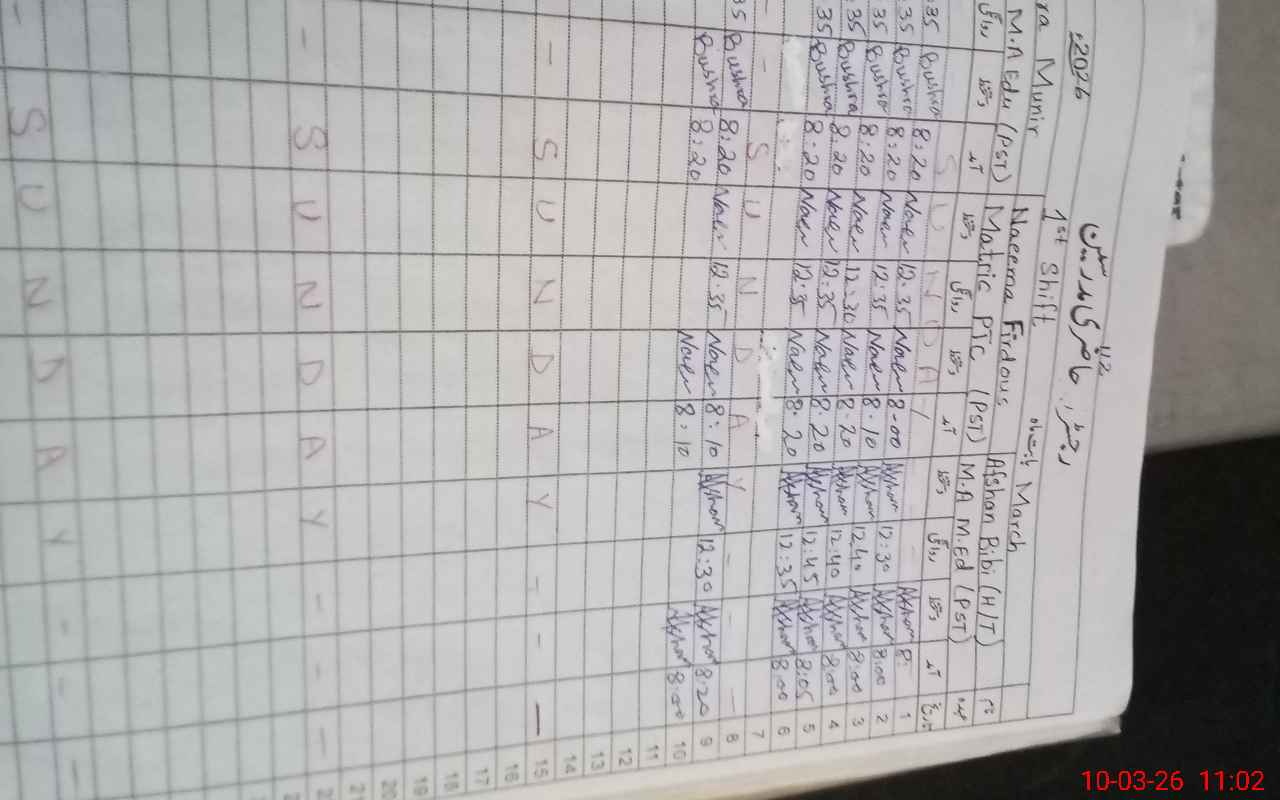 رجسٹر حاضری مدرسین
112
2026
1st Shift
ماہ March
Afshan Bibi (H/T)
Naeema Firdous
ra Munir
نام
M.A M.Ed (PST)
Matric PTC (PST)
M.A Edu (PST)
عہدہ
تاریخ آمد دستخط روانگی دستخط آمد دستخط روانگی دستخط آمد دستخط روانگی
1 8: Afshan - - S U N D A Y
2 8:00 Afshan 12:30 Afshan 8:00 Naem 12:35 Naem 8:20 Bushra :35
3 8:00 Afshan 12:40 Afshan 8:10 Naem 12:35 Naem 8:20 Bushra :35
4 8:00 Afshan 12:40 Afshan 8:20 Naem 12:30 Naem 8:20 Bushra 35
5 8:05 Afshan 12:45 Afshan 8:20 Naem 12:35 Naem 8:20 Bushra :35
6 8:00 Afshan 12:35 Afshan 8:20 Naem 12:35 Naem 8:20 Bushra 35
7
8 - - - Y A D N U S - -
9 8:20 Afshan 12:30 Afshan 8:10 Naem 12:35 Naem 8:20 Bushra 35
10 8:00 Afshan 8:10 Naem 8:20 Bushra
11
12
13
14
15 - - - S U N D A Y -
16
17
18
19
20
21
22 - - - S U N D A Y -
- - - S U N D A Y -
10-03-26 11:02